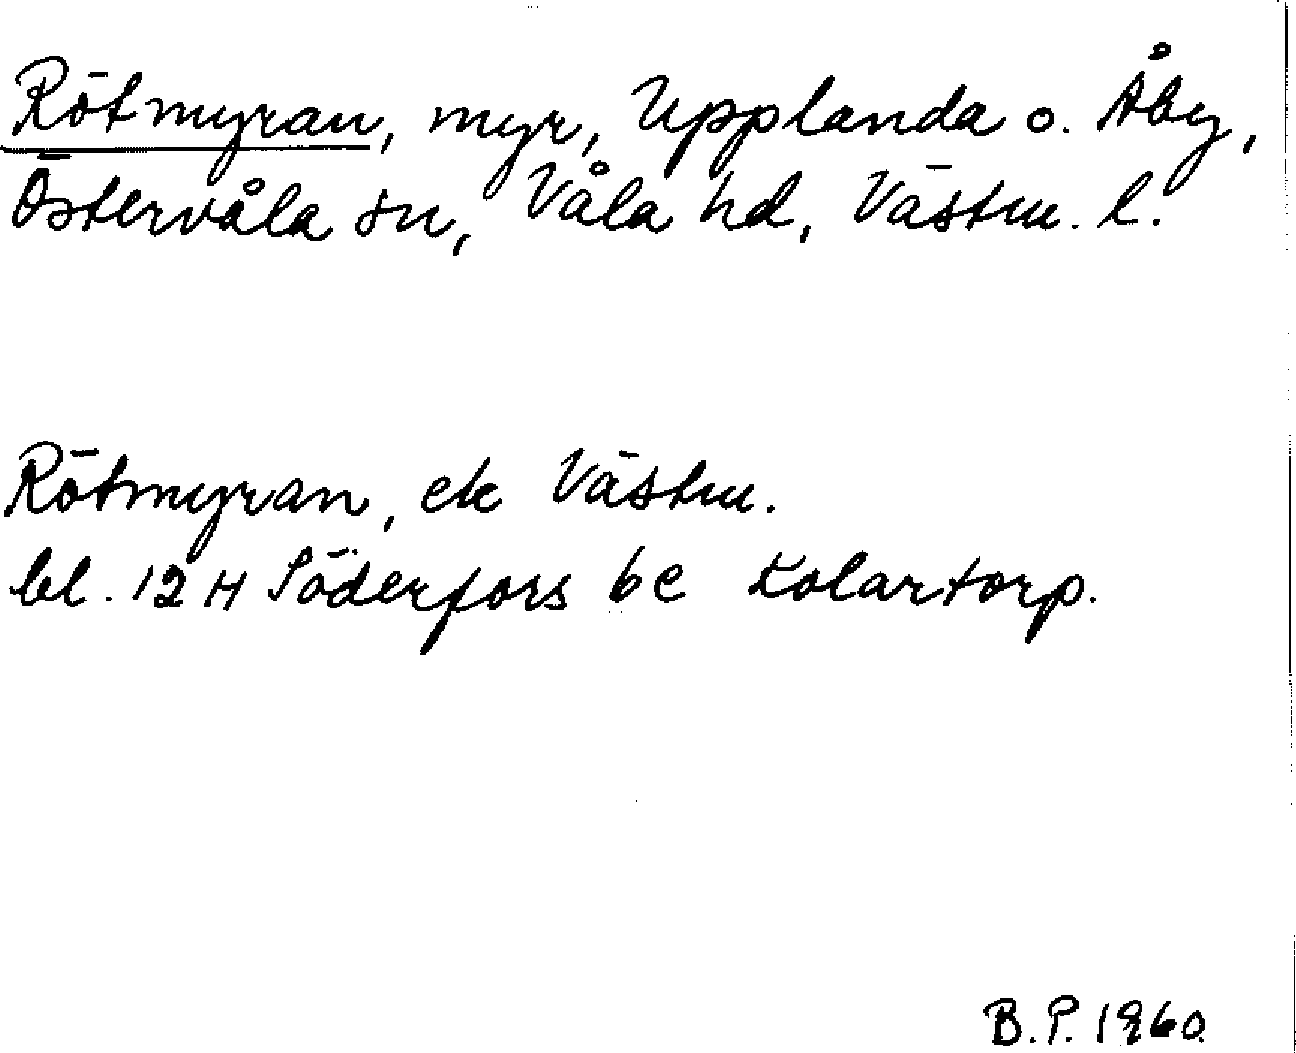 Rötmyran, myr, Upplanda o. Åby,
Östervåla sn, Våla hd, Västm. l.
Rötmyran, ek Västm.
bl. 12 H Söderfors 6 e Kolartorp.
B.P. 1960.